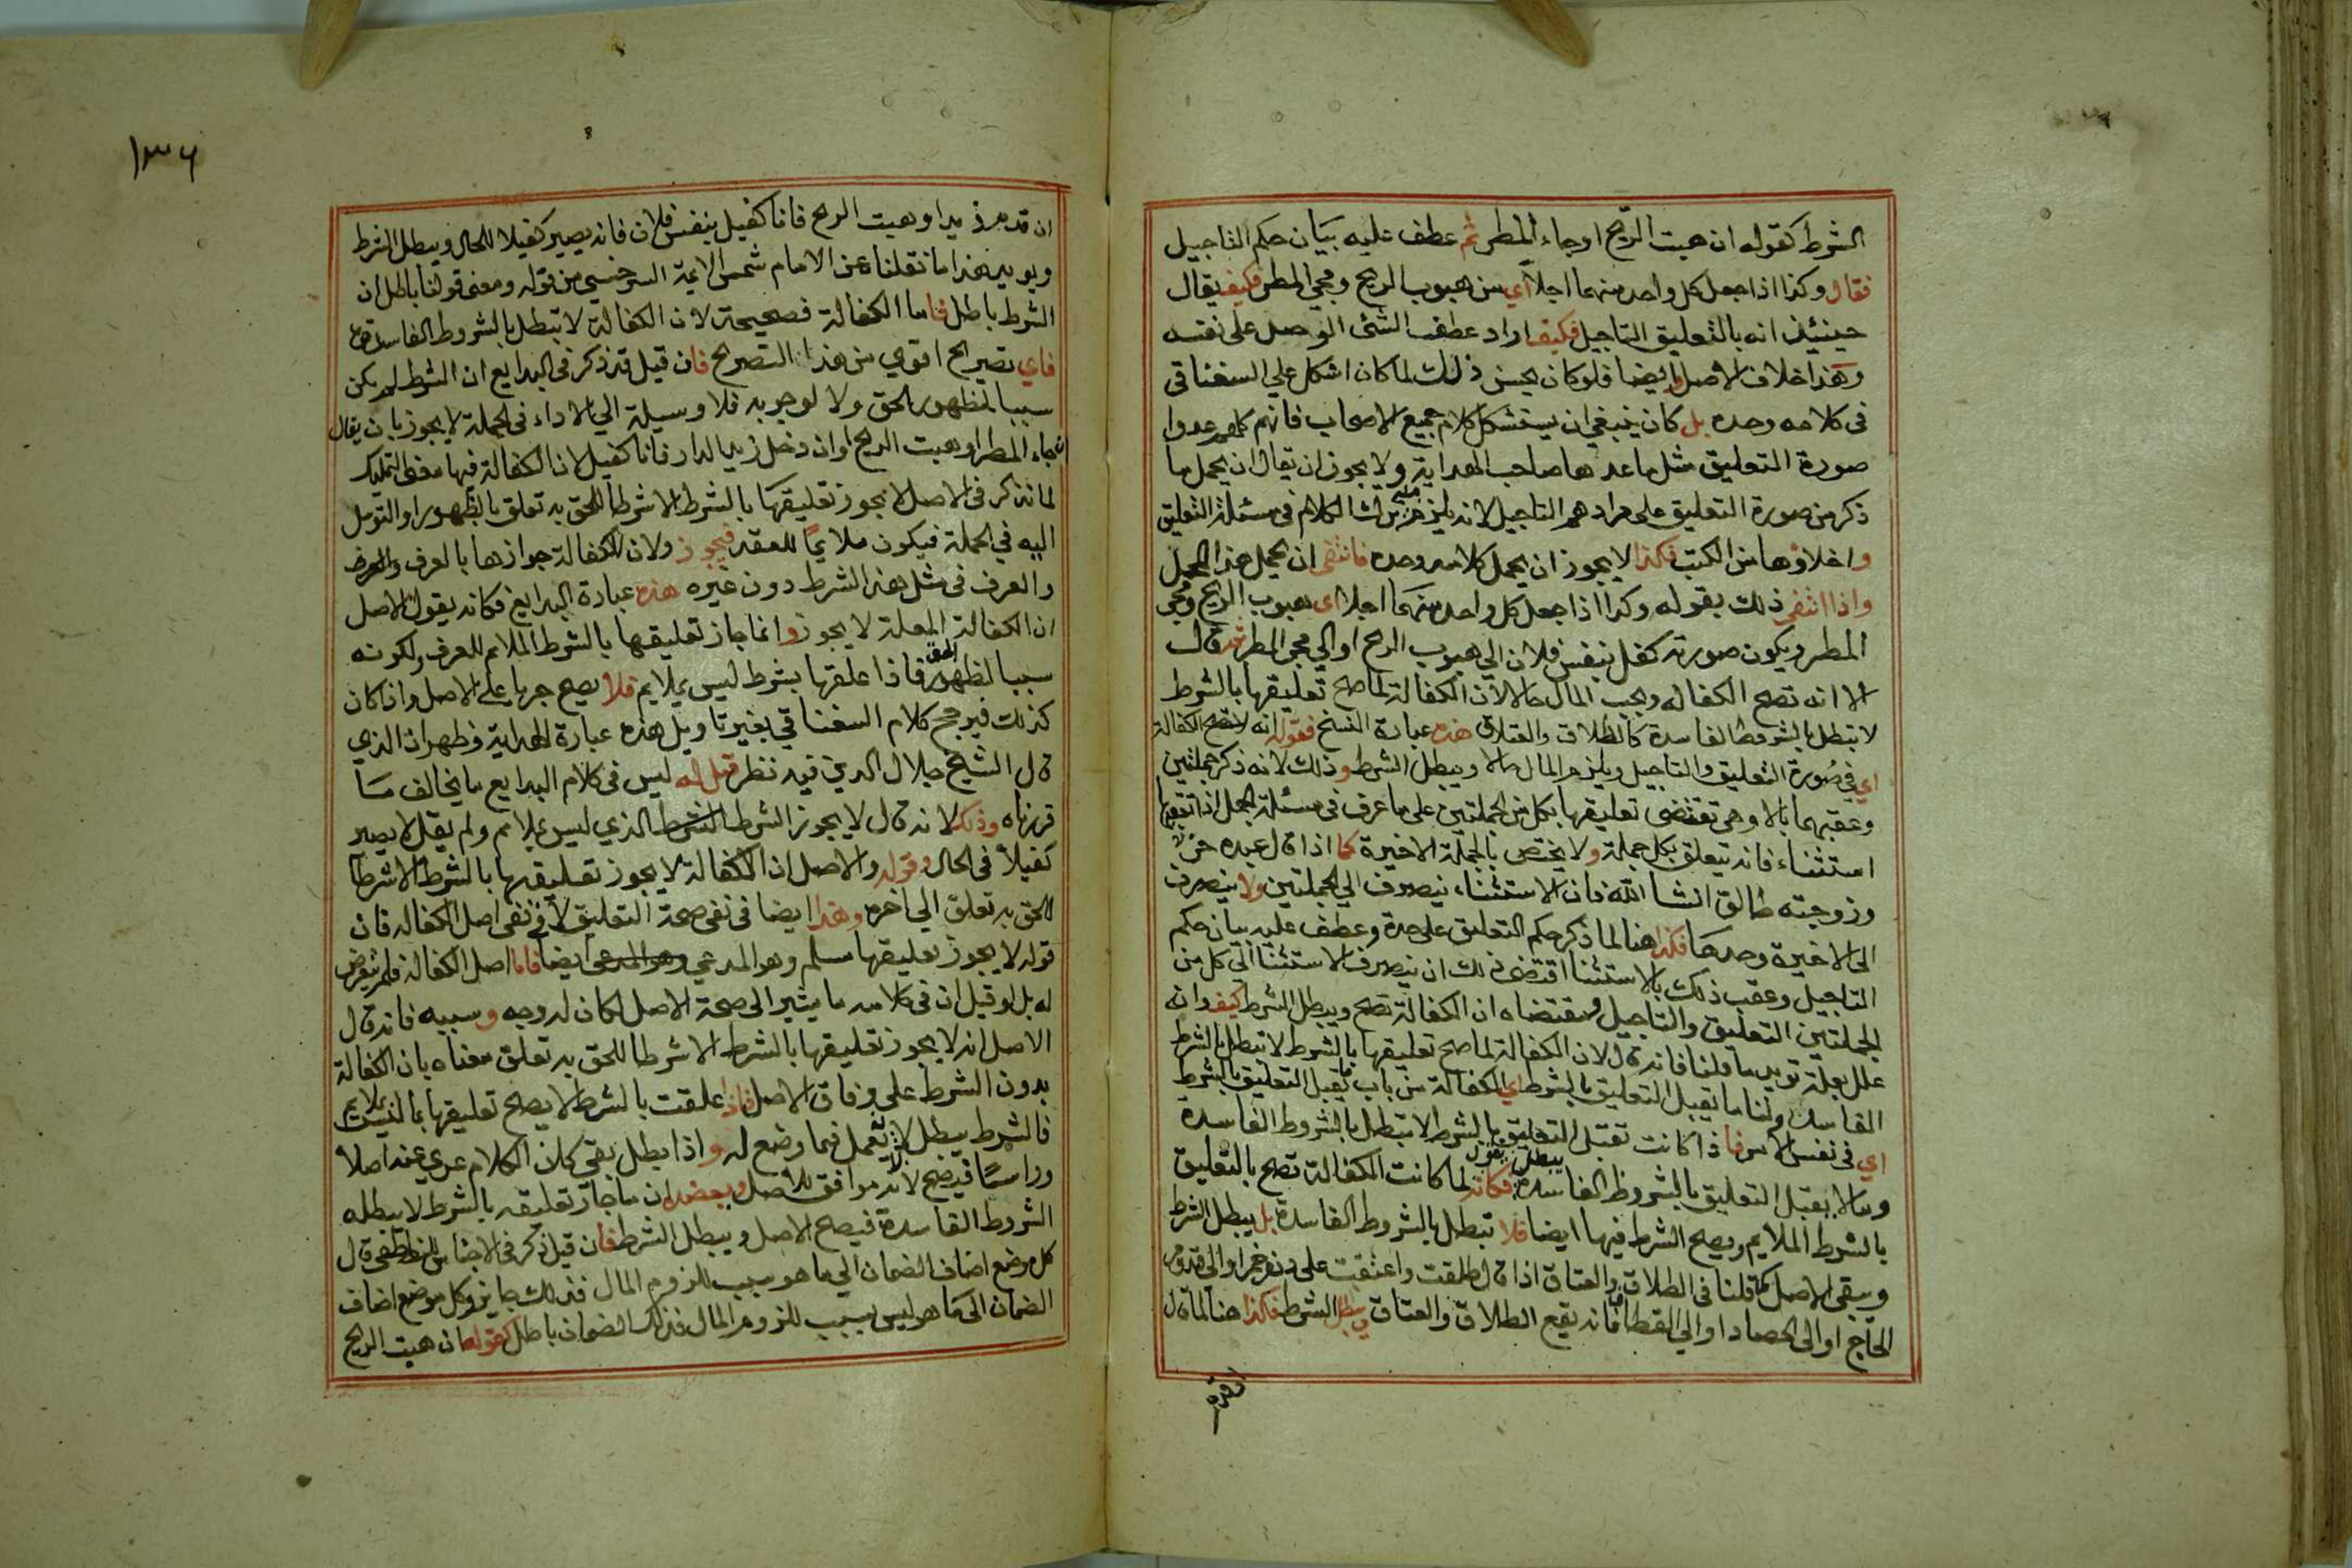 الشرط كقوله ان هبت الريح اوجاء المطر ثم عطف عليه بيان حكم التاجيل
فقال وكذا اذا جعل كل واحد منهما اجلا اي من هبوب الريح ومجي المطر فكيف يقال
حينئذ انه بالتعليق التاجيل فكيف اراد عطف الشئ الوصل على نفسه
وهذا خلاف الاصل وايضا فلو كان يحسن ذلك لما كان اشكل علي السغناقي
فى كلامه وحده بل كان ينبغي ان يستشكل كلام جميع الاصحاب فانهم كلهم عدوا
صورة التعليق مثل ما عدها صاحب الهداية ولا يجوز ان يقال ان يحمل ما
ذكر من صورة التعليق على مرادهم التاجيل لانه يلزم منه ترك الكلام فى مسئلة التعليق
واخلاؤها من الكتب فكذا لا يجوز ان يحمل كلامه وحده فانتفى ان يحمل هذا المحمل
واذا انتفى ذلك بقوله وكذا اذا جعل كل واحد منهما اجلا اى هبوب الريح ومجي
المطر ويكون صورته كفل بنفس فلان الي هبوب الريح او الي مجي المطر ثم قال
الا انه تصح الكفاله ويجب المال حالا لان الكفالة لما صح تعليقها بالشرط
لا تبطل بالشروط الفاسدة كالطلاق والعتاق هذه عبارة النسخ فقوله انه لا تصح الكفالة
اي فى صورة التعليق والتاجيل ويلزم المال حالا ويبطل الشرط وذلك لانه ذكر جملتين
وعقبهما بالا وهي تقتضى تعليقها بكل من الجملتين على ما عرف فى مسئلة الجمل اذا تعقبها
استثناء فانه يتعلق بكل جملة ولا يختص بالجملة الاخيرة كما اذا قال عبده حر
وزوجته طالق ان شا الله فان الاستثناء ينصرف الي الجملتين ولا ينصرف
الى الاخيرة وحدها فكذا هنا لما ذكر حكم التعليق على حدة وعطف عليه بيان حكم
التاجيل وعقب ذلك بالاستثنا اقتضى ذلك ان ينصرف الاستثنا الي كل من
الجملتين التعليق والتاجيل ومقتضاه ان الكفالة تصح ويبطل الشرط كيف وانه
علل بعلة تويد ما قلنا فانه قال لان الكفالة لما صح تعليقها بالشرط لا تبطل بالشرط
الفاسد ولنا ما يقبل التعليق بالشرط اي الكفالة من باب ما يقبل التعليق بالشرط
اي فى نفس الامر فاذا كانت تقبل التعليق بالشرط لا تبطل بالشروط الفاسدة
وما لا يقبل التعليق بالشروط الفاسدة يبطل فكانه يقول لما كانت الكفالة تصح بالتعليق
بالشرط الملايم ويصح الشرط فيها ايضا فلا تبطل بالشروط الفاسدة بل يبطل الشرط
ويبقى الاصل كما قلنا فى الطلاق والعتاق اذا قال طلقت واعتقت على دن خمر او الى قدوم
الحاج او الى الحصاد او الي القطاف فانه يقع الطلاق والعتاق ويبطل الشرط فكذا هنا لما قال
١٣٦
ان قدم زيد او هبت الريح فانا كفيل بنفس فلان فانه يصير كفيلا للحال ويبطل الشرط
ويويد هذا ما نقلناه عن الامام شمس الايمة السرخسي من قوله ومعنى قولنا باطل ان
الشرط باطل فاما الكفالة فصحيحة لان الكفالة لا تبطل بالشروط الفاسدة
فاي تصريح اقوي من هذا التصريح فان قيل قد ذكر فى البدايع ان الشرط لم يكن
سببا لظهور الحق ولا لوجوبه فلا وسيلة الي الاداء فى الجملة لا يجوز بان يقال
اذا جاء المطر او هبت الريح او ان دخل زيد الدار فانا كفيل لان الكفالة فيها معنى التمليك
لما نذكر فى الاصل لا يجوز تعليقها بالشرط الا شرطا للحق به تعلق بالظهور او التوسل
اليه في الجملة فيكون ملايما للعقد فيجوز ولان الكفالة جوازها بالعرف
والعرف فى مثل هذا الشرط دون غيره هذه عبارة البدايع فكانه يقول الاصل
ان الكفالة المعلقة لا يجوز وانما جاز تعليقها بالشرط الملايم للعرف ولكونه
سببا لظهور الحق فاذا علقها بشرط ليس بملايم فلا يصح جريا على الاصل واذا كان
كذلك فيرجح كلام السغناقي بغير تاويل هذه عبارة الهداية وظهر ان الذي
قال الشيخ جلال الدين فيه نظر قيل له ليس فى كلام البدايع ما يخالف ما
قررناه وذلك لانه قال لا يجوز الشرط الذي ليس بملايم ولم يقل لا يصير
كفيلا فى الحال وقوله والاصل ان الكفالة لا يجوز تعليقها بالشرط الا شرطا
للحق به تعلق الي اخره وهذا ايضا فى نفى صحة التعليق لا فى نفى اصل الكفاله فان
قوله لا يجوز تعليقها مسلم وهو المدعي ايضا فاما اصل الكفالة فلم يتعرض
له بل لو قيل ان فى كلامه ما يشير الى صحة الاصل لكان له وجه وسببه فانه قال
الاصل انه لا يجوز تعليقها بالشرط الا شرطا للحق به تعلق معناه بان الكفالة
بدون الشرط على وفاق الاصل فاذا علقت بالشرط لا يصح تعليقها بما ليس بملايم
فالشرط يبطل لا يعمل فيما وضع له واذا بطل بقي كان الكلام عري عنه اصلا
وراسا فيصح لانه موافق للاصل ويعضده ان ما جاز تعليقه بالشرط لا يبطله
الشروط الفاسدة فيصح الاصل ويبطل الشرط فان قيل ذكر فى الاجناس للناطفى قال
كل موضع اضاف الضمان الي ما هو سبب للزوم المال فذلك جايز وكل موضع اضاف
الضمان الى ما هو ليس بسبب للزوم المال فذلك الضمان باطل كقوله ان هبت الريح